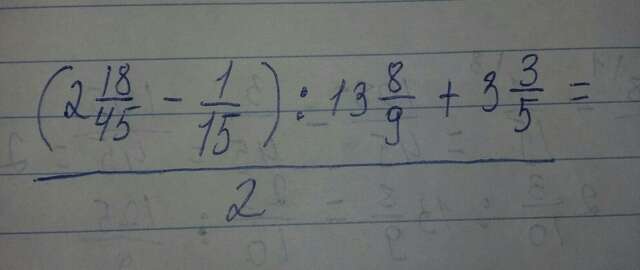 (2 18/45 - 1/15) : 13 8/9 + 3 3/5 =
2